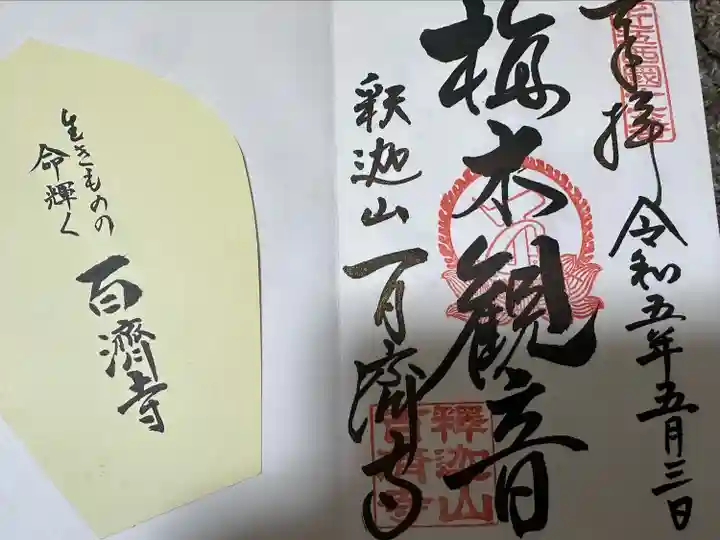 奉拝
令和五年五月三日
植木観音
釈迦山 百済寺
釋迦山
百済寺
生きものの
命輝く
百濟寺